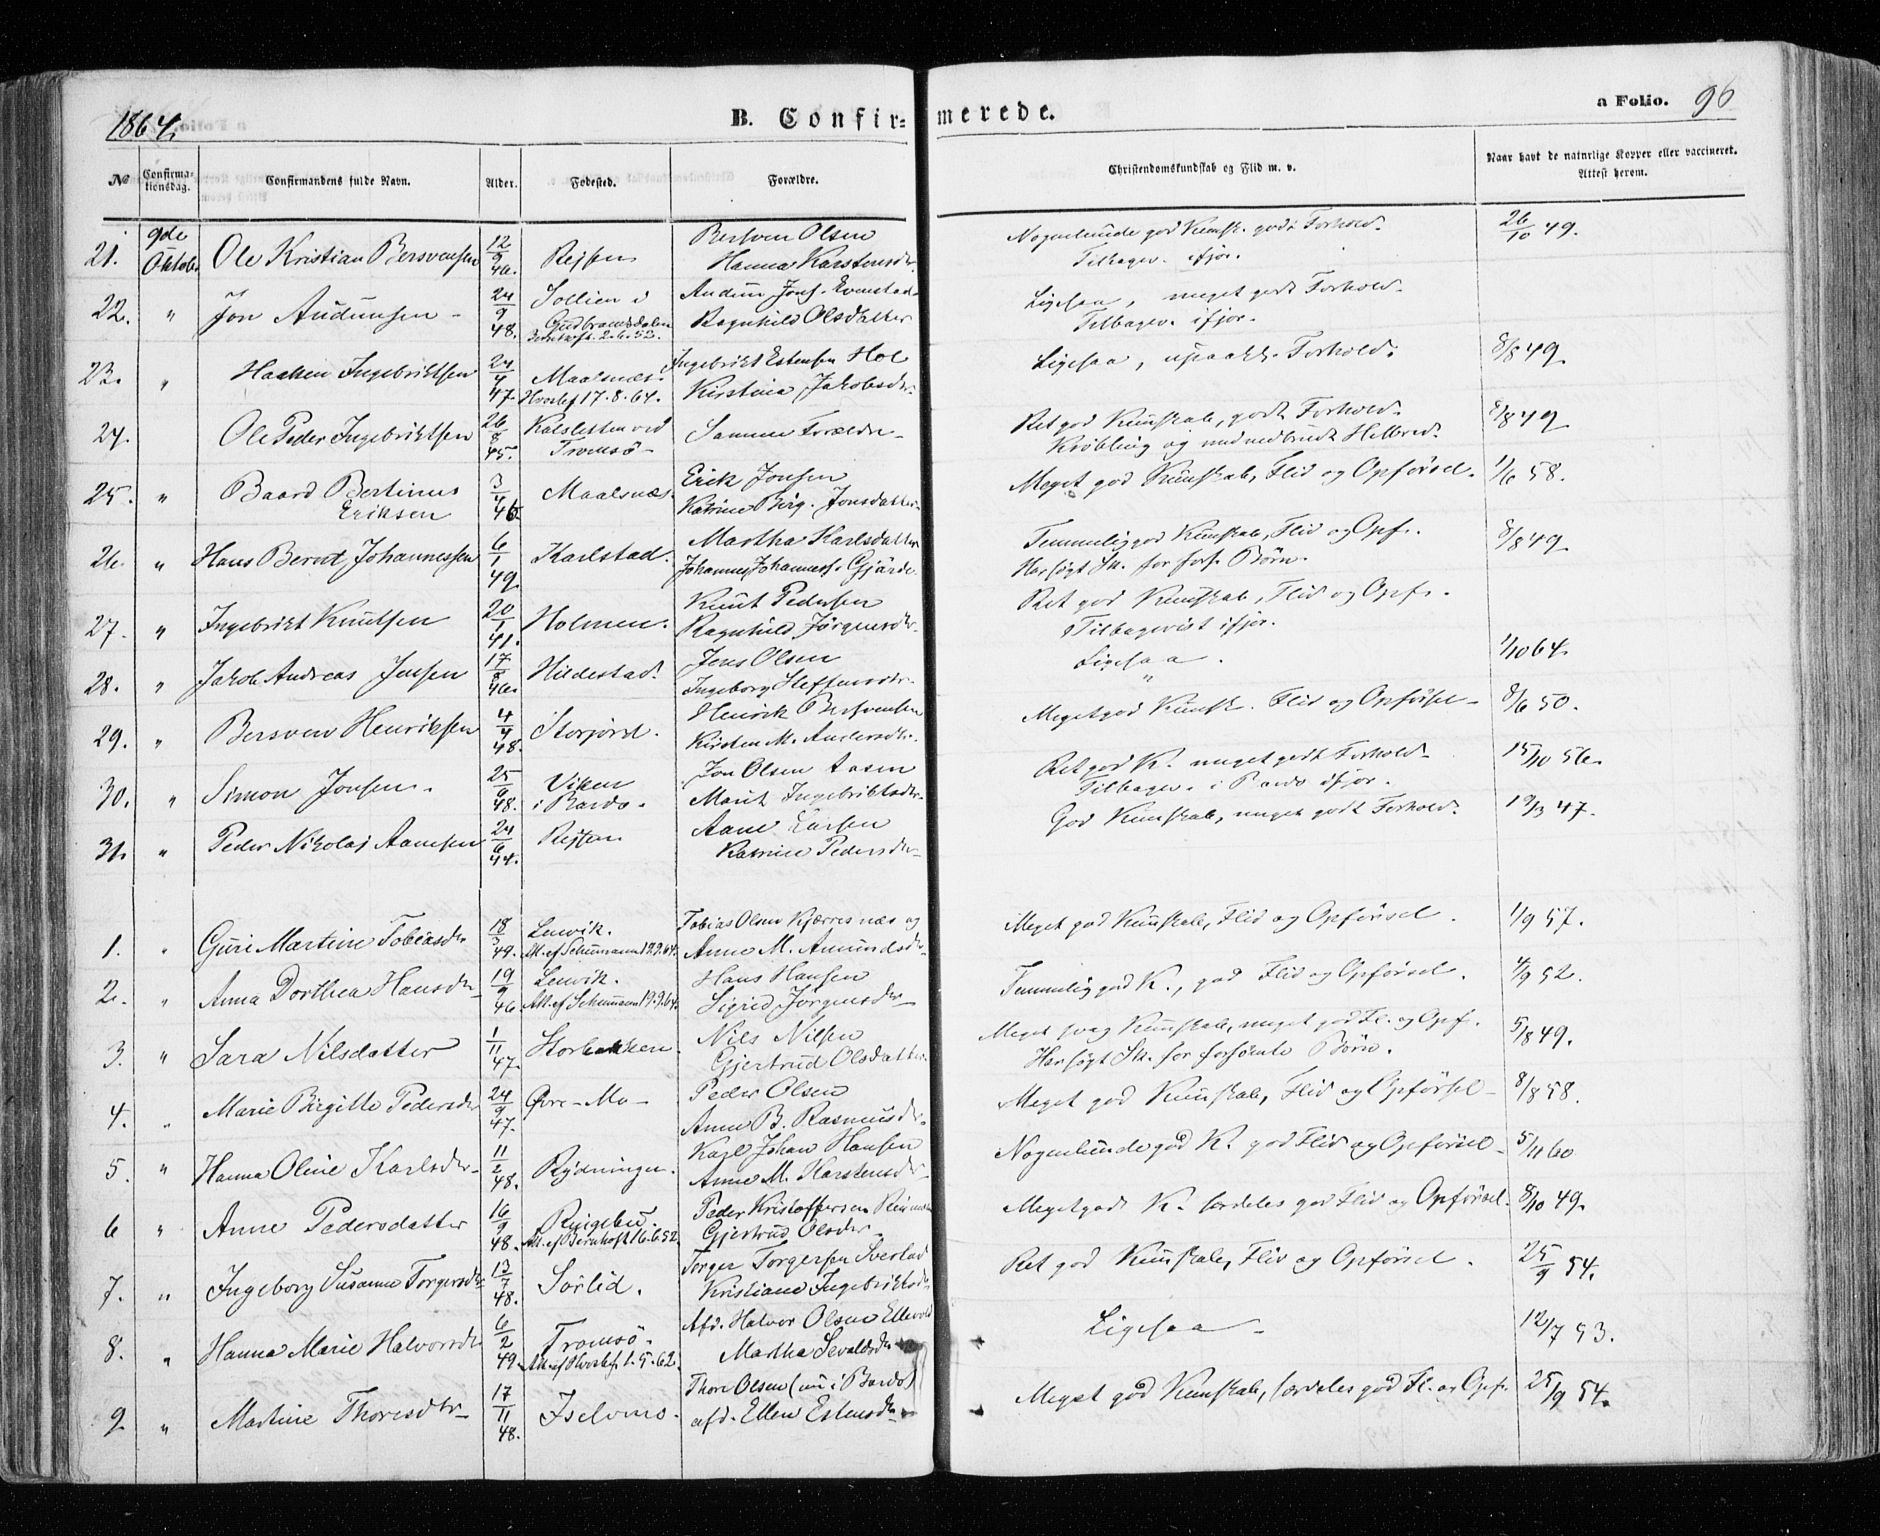 1864.
B. Confir=
merede.
a Folio. 96
No
Confirma-
tionsdag.
Confirmandens fulde Navn.
Alder.
Fødested.
Forældre.
Christendomskundskab og Flid m. v.
Naar havt de naturlige Kopper eller vaccineret.
Attest herom.
9de
Oktob.
21. Ole Kristian Bersvensen 12/9 46. Rejsen Bersven Olsen
Hanna Karstensdr. Nogenlunde god Kunsk. godt Forhold. 26/10 49.
Tilbagev. ifjor.
22. " Jon Audunsen 24/9 48. Sollien i Audun Jons. Evenstad
Gudbransdalen Ragnhild Olsdatter Ligesaa, meget godt Forhold.
2.6.52. Tilbagev. ifjor.
23. " Haaken Ingebriktsen 24/4 47. Maalsnæs. Ingebrikt Estensen Hol
Hvoslef 17.8.64. Kirstina Jakobsdr. Ligesaa, upaakl. Forhold. 8/8 49.
24. Ole Peder Ingebriktsen 26/8 45. Kalslетten ved
Tromsö Samme Forældre Ret god Kunskab, godt Forhold. 8/8 49
Krøbling og nednedbrudt Helbred.
25. " Baard Bertinus
Eriksen 3/4 46. Maalsnæs. Erik Jonsen
Katrine Birg. Jonsdatter Meget god Kunskab, Flid og Opførsel. 1/6 58.
26. " Hans Bernt Johannessen 6/1 49. Karlstad. Martha Karlsdatter
Johannes Johanness. Gjärde. Temmelig god Kunskab, Flid og Opf. 8/8 49.
Har søgt Sk. for fors. Børn.
27. " Ingebrikt Knutsen 20/1 41. Holmen. Knut Pedersen
Ragnhild Jörgensdr. Ret god Kunskab, Flid og Opf.
Tilbagevist ifjor.
28. " Jakob Andreas Jensen 17/8 46. Hildestad. Jens Olsen
Ingeborg Steffensdr. Ligesaa. 1/10 64.
29. " Bersven Henriksen 4/4 48. Storjord. Henrik Bersvensen
Kirsten M. Andersdr. Meget god Kunsk. Flid og Opførsel 8/6 50.
30. " Simon Jonsen. 25/6 48. Viken
i Bardo. Jon Olsen Aasen
Marit Ingebriktsdr. Ret god K. meget godt Forhold. 15/10 56.
Tilbagev. i Bardo ifjor.
31. " Peder Nikolai Aanesen 24/6 44. Rejsen Aane Larsen
Katrine Pedersdr. God Kunskab, meget godt Forhold. 19/3 47.
1. " Guri Martine Tobiasdr 18/3 49. Lenvik. Tobias Olsen Kjærresnæs og
Att. af Schumann 19.9.64. Anne M. Amundsdr. Meget god Kunskab, Flid og Opførsel. 1/9 57.
2. " Anna Dorthea Hansdr. 19/9 46. Lenvik. Hans Hansen
Att. af Schumann 19.9.64. Sigrid Jörgensdr. Temmelig god K., god Flid og Opførsel. 4/9 52.
3. " Sara Nilsdatter 1/11 47. Storbakken. Nils Nilsen
Gjertrud Olsdatter Meget svag Kunskab, meget god Fl. og Opf. 5/8 49.
Har søgt Sk. for forsömte Børn.
4. " Marie Birgitte Pedersdr 24/9 47. Øvre-Mo Peder Olsen
Anne B. Rasmusdr. Meget god Kunskab, Flid og Opførsel 8/8 58.
5. " Hanna Oline Karlsdr. 11/2 48. Rydningen. Karl Johan Hansen
Anne M. Karstensdr. Nogenlunde god K. god Flid og Opførsel 5/11 60
6 " Anne Pedersdatter 16/9 48. Ringebu. Peder Kristoffersen
Att. af Bernhoft 16.6.52. Gjertrud Olsdr. Meget godt K. særdeles god Flid og Opførsel. 8/10 49.
7. " Ingeborg Susanne Torgersdr 13/7 48. Sørlid. Torger Torgersen Sverstad
Kristiane Ingebriktsdr. Ret god Kunskab, Flid og Opførsel. 25/9 54.
8. " Hanna Marie Halvorsdr 6/2 49. Tromsö. Afd. Halvor Olsen Ellevold
Att. af Hvoslef 1.5.62. Martha Sevaldsdr Ligesaa 12/7 53.
9. " Martine Thoresdtr 17/11 48. Iselvmo. Thore Olsen (nu i Bardo)
afd. Ellen Estensdr. Meget god Kunskab, særdeles god Fl. og Opf. 25/9 54.